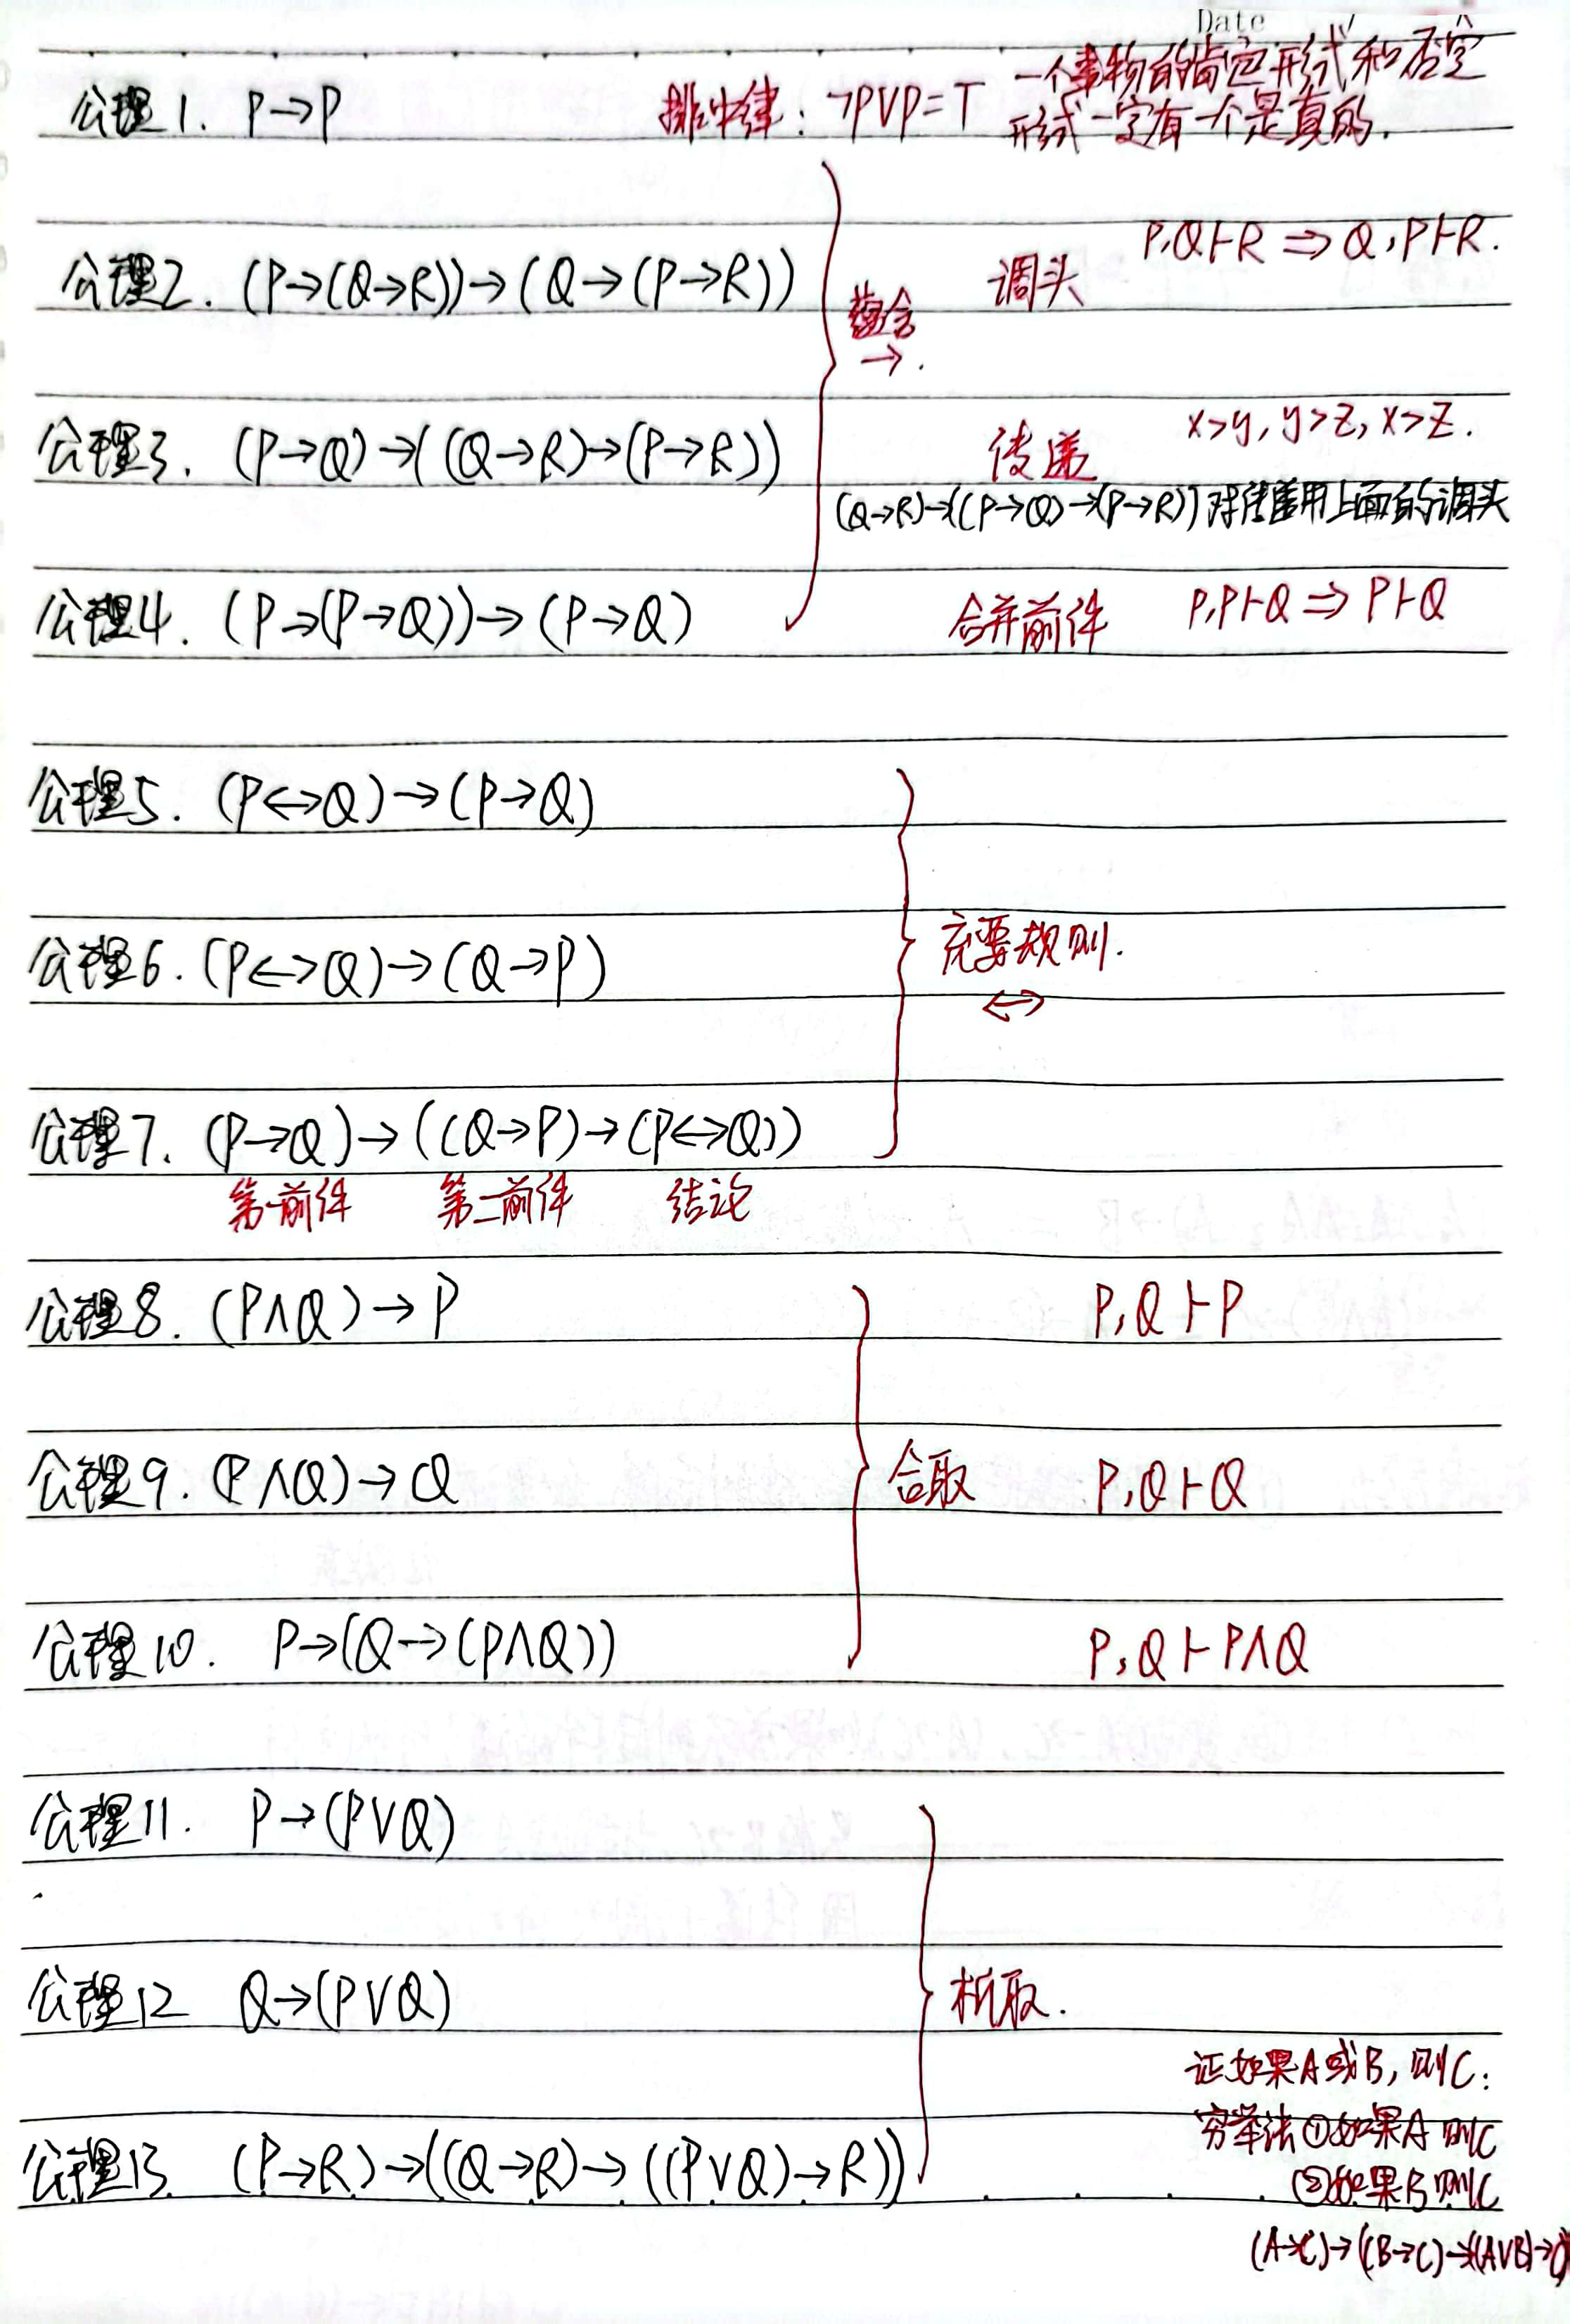 Date
公理1. P→P 排中律：¬P∨P=T 一个事物的肯定形式和否定
形式一定有一个是真的.
公理2. (P→(Q→R))→(Q→(P→R)) 调头 P,Q⊢R ⇒ Q,P⊢R.
蕴含
→.
公理3. (P→Q)→((Q→R)→(P→R)) 传递 x>y, y>z, x>z.
(Q→R)→((P→Q)→(P→R)) 对传递用上面的调头
公理4. (P→(P→Q))→(P→Q) 合并前件 P,P⊢Q ⇒ P⊢Q
公理5. (P↔Q)→(P→Q)
公理6. (P↔Q)→(Q→P) 充要规则.
↔
公理7. (P→Q)→((Q→P)→(P↔Q))
第一前件 第二前件 结论
公理8. (P∧Q)→P P,Q⊢P
公理9. (P∧Q)→Q 合取 P,Q⊢Q
公理10. P→(Q→(P∧Q)) P,Q⊢P∧Q
公理11. P→(P∨Q)
公理12 Q→(P∨Q) 析取.
证如果A或B, 则C:
穷举法 ①如果A 则C
公理13. (P→R)→((Q→R)→((P∨Q)→R))
②如果B 则C
(A→C)→((B→C)→((A∨B)→C)